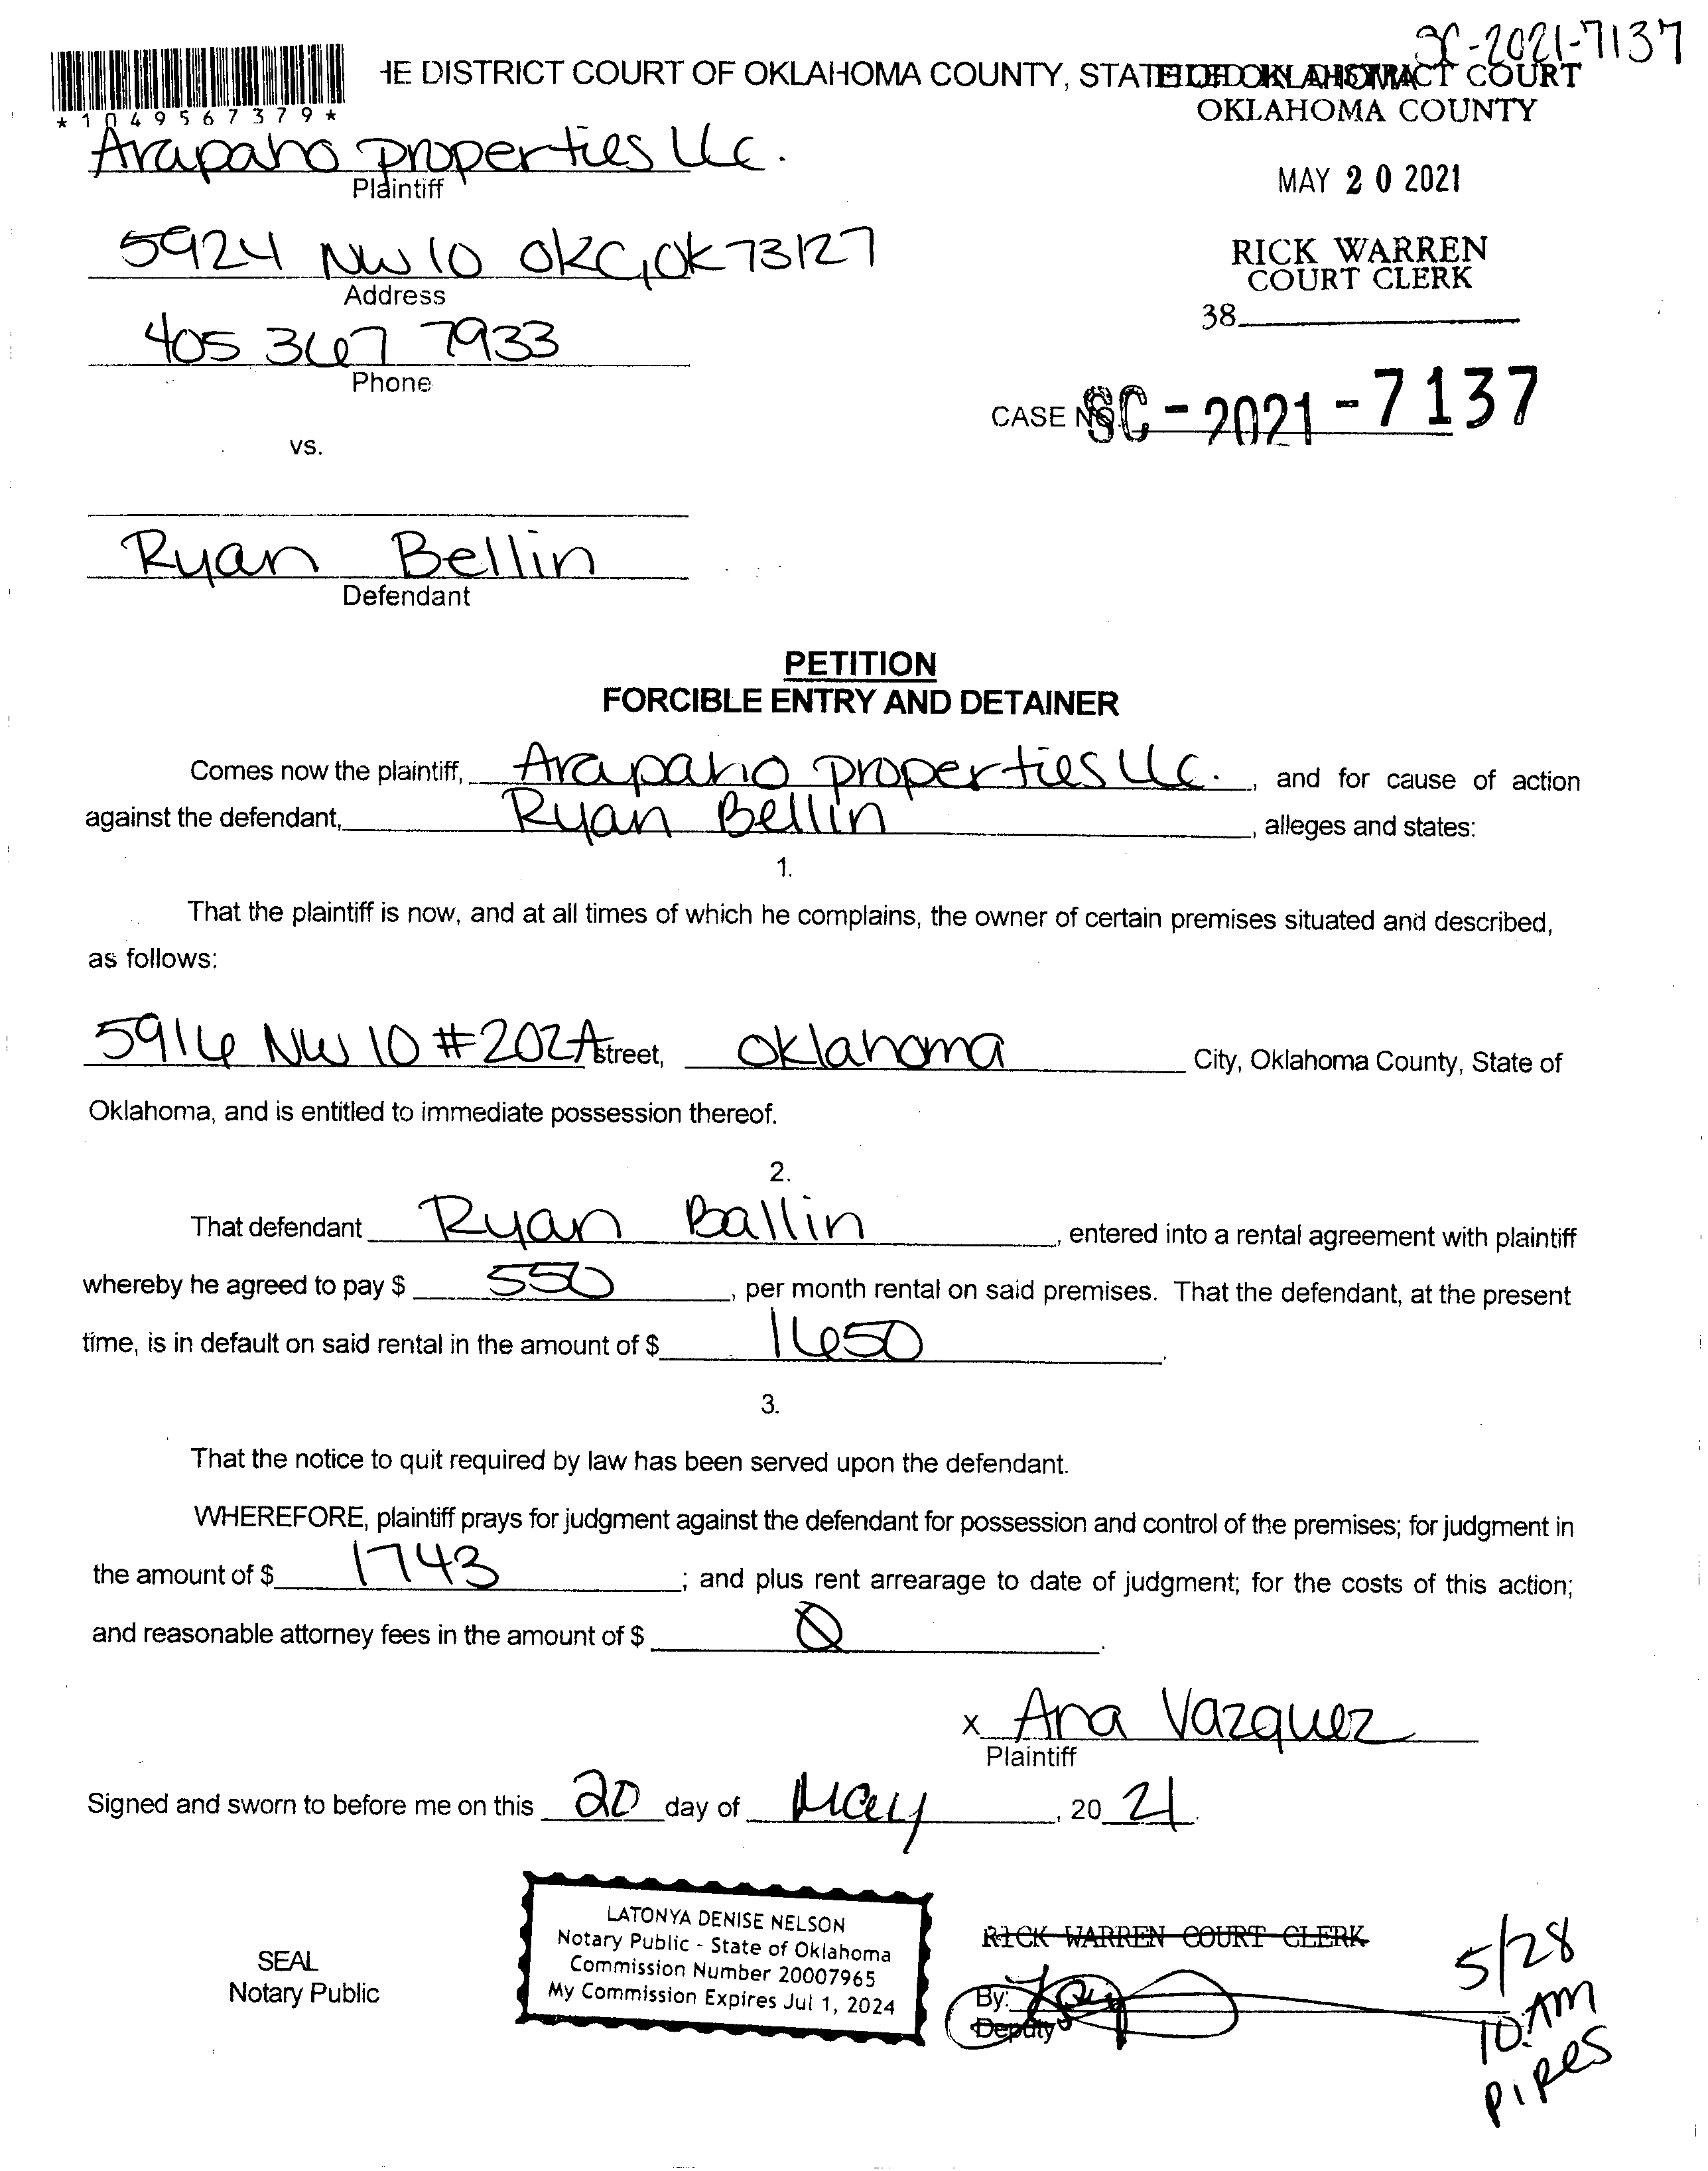 SC-2021-7137
HE DISTRICT COURT OF OKLAHOMA COUNTY, STATE OF OKLAHOMA
FILED IN DISTRICT COURT
OKLAHOMA COUNTY
*1049567379*
Arapaho properties llc.
Plaintiff
MAY 20 2021
5924 NW 10 OKC, OK 73127
Address
RICK WARREN
COURT CLERK
38
405 367 7933
Phone
CASE NO. SC-2021-7137
vs.
Ryan Bellin
Defendant
PETITION
FORCIBLE ENTRY AND DETAINER
Comes now the plaintiff, Arapaho properties llc. , and for cause of action
against the defendant, Ryan Bellin , alleges and states:
1.
That the plaintiff is now, and at all times of which he complains, the owner of certain premises situated and described,
as follows:
5916 NW 10 #202A street, Oklahoma City, Oklahoma County, State of
Oklahoma, and is entitled to immediate possession thereof.
2.
That defendant Ryan Ballin , entered into a rental agreement with plaintiff
whereby he agreed to pay $ 550 , per month rental on said premises. That the defendant, at the present
time, is in default on said rental in the amount of $ 1650 .
3.
That the notice to quit required by law has been served upon the defendant.
WHEREFORE, plaintiff prays for judgment against the defendant for possession and control of the premises; for judgment in
the amount of $ 1743 ; and plus rent arrearage to date of judgment; for the costs of this action;
and reasonable attorney fees in the amount of $ 0 .
x Ana Vazquez
Plaintiff
Signed and sworn to before me on this 20 day of May , 20 21.
LATONYA DENISE NELSON
Notary Public - State of Oklahoma
Commission Number 20007965
My Commission Expires Jul 1, 2024
SEAL
Notary Public
RICK WARREN COURT CLERK
By:
Deputy
5/28
10:AM
PIRES